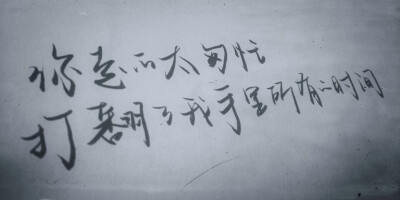 你走的太匆忙
打翻了我手里所有的时间